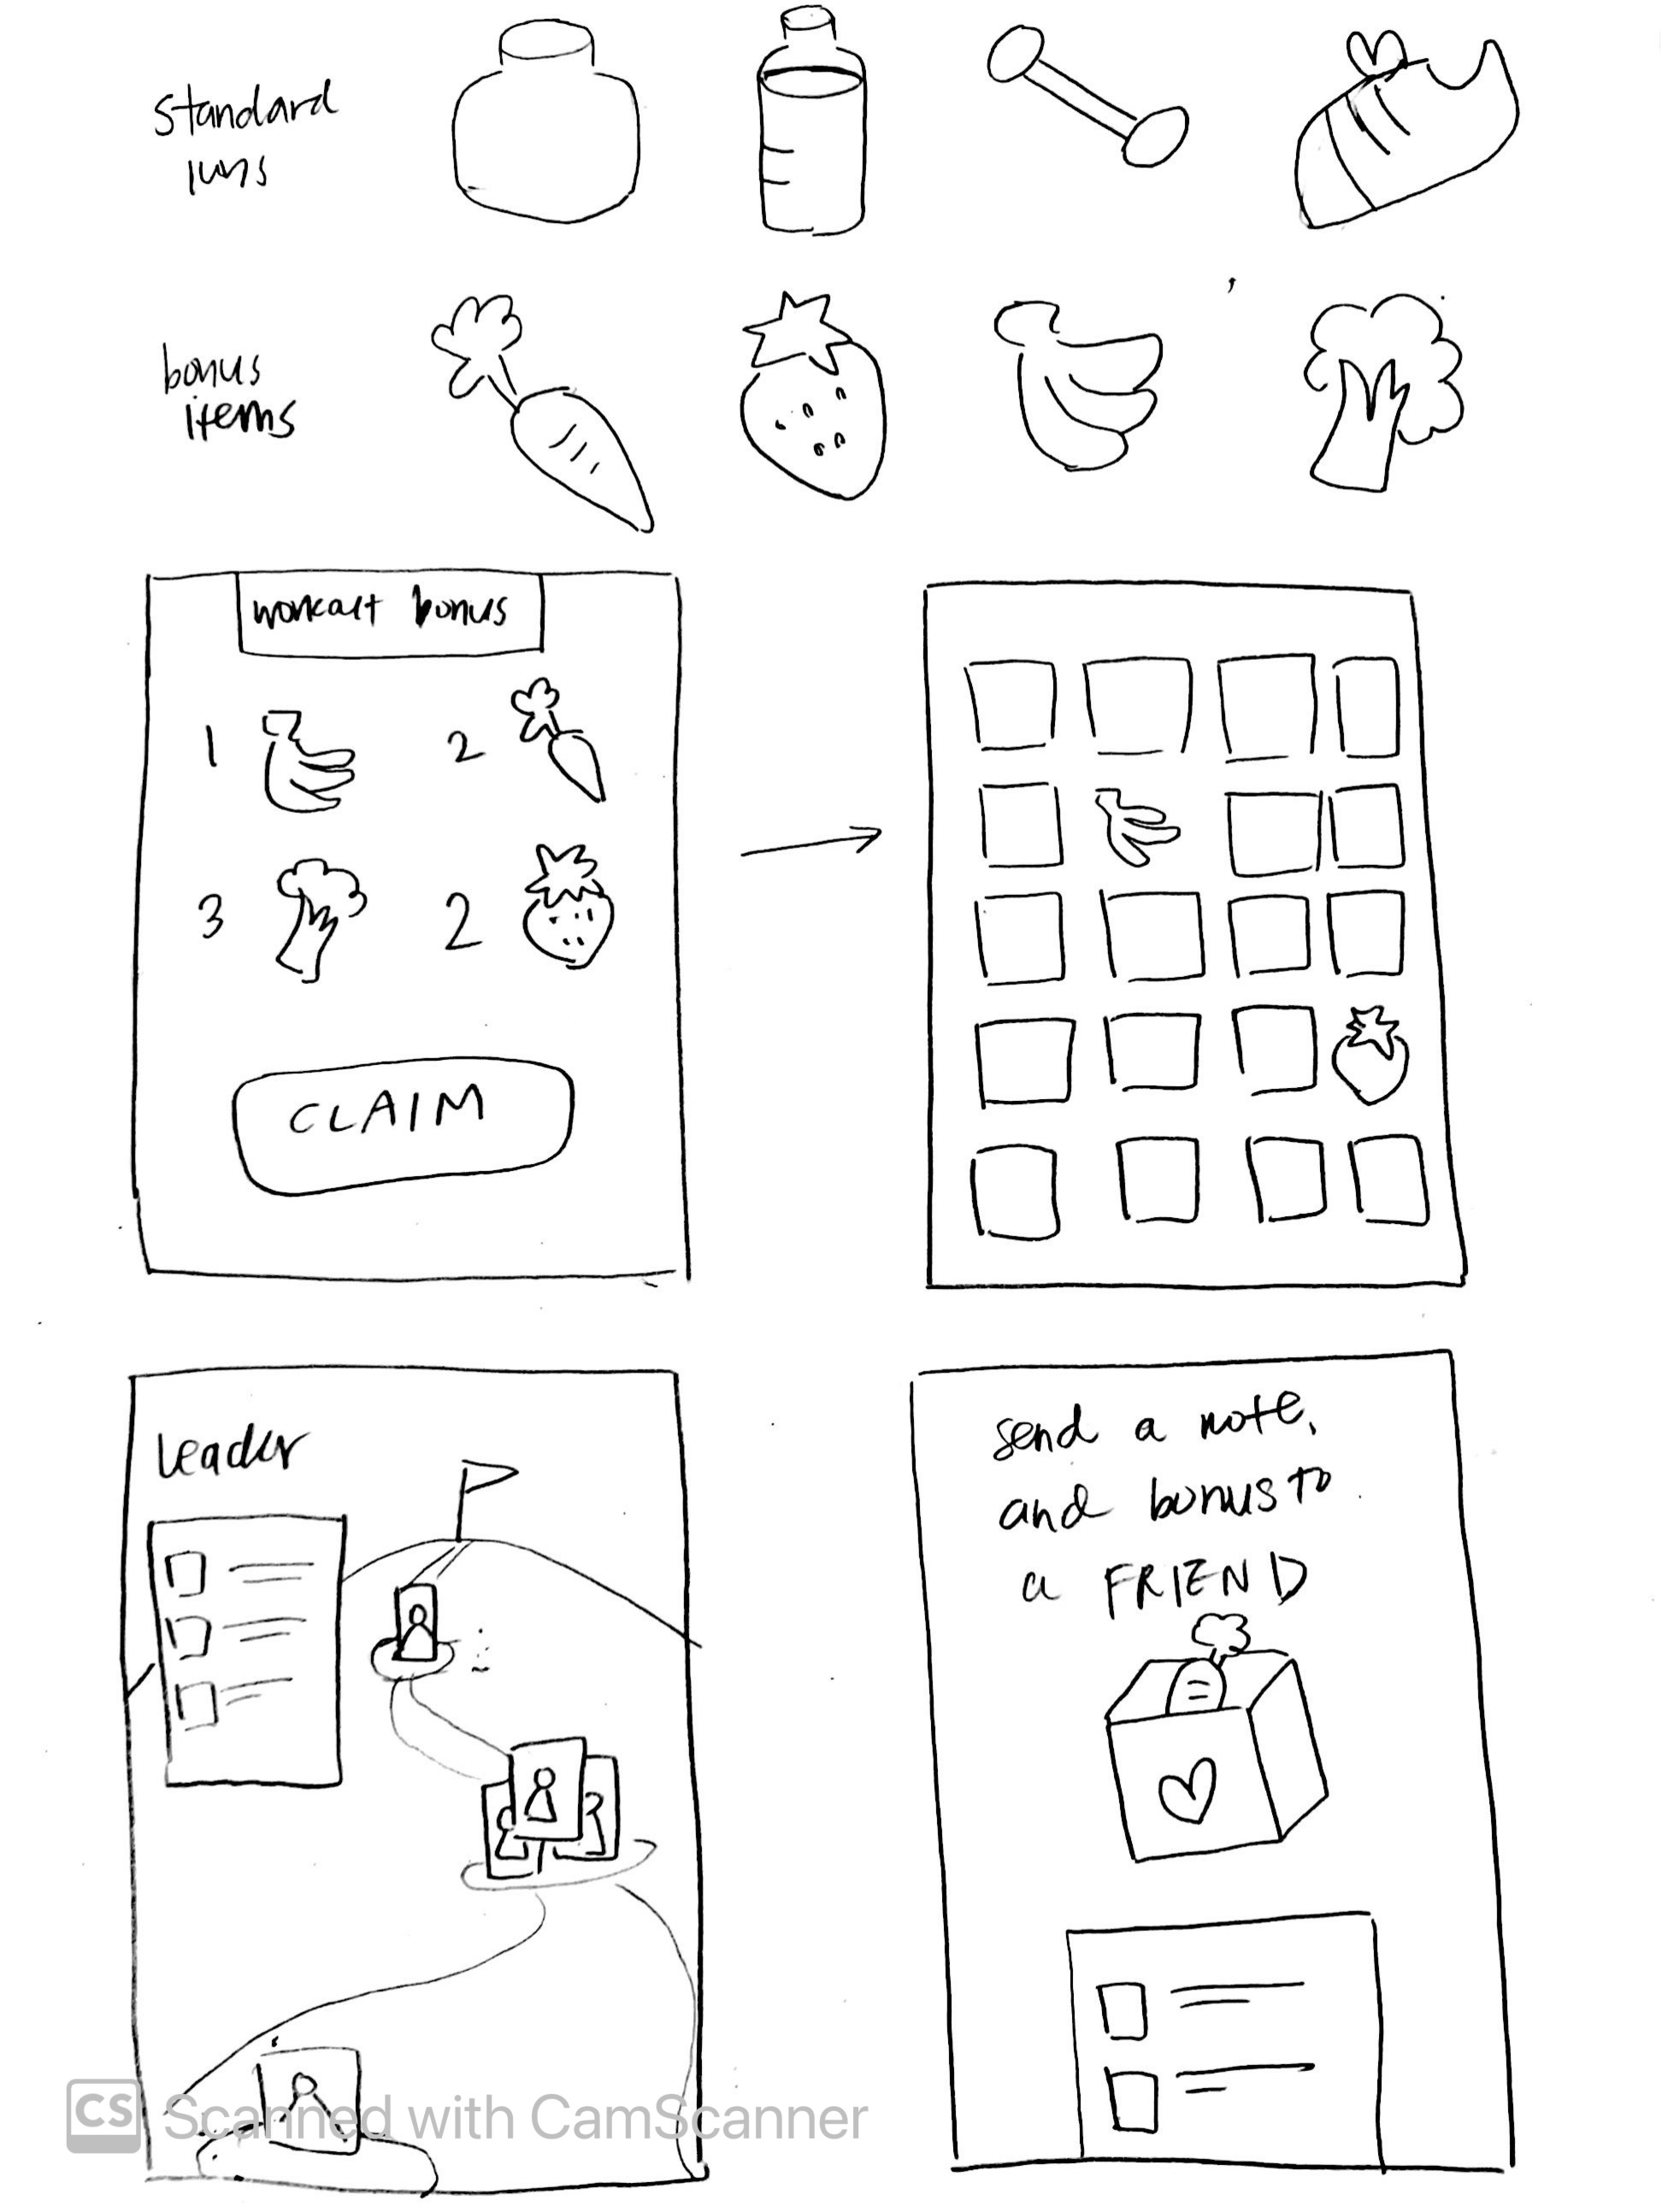 standard
bonus
items
workout bonus
1
2
3
2
CLAIM
Leader
send a note,
and bonus to
a FRIEND
CS Scanned with CamScanner